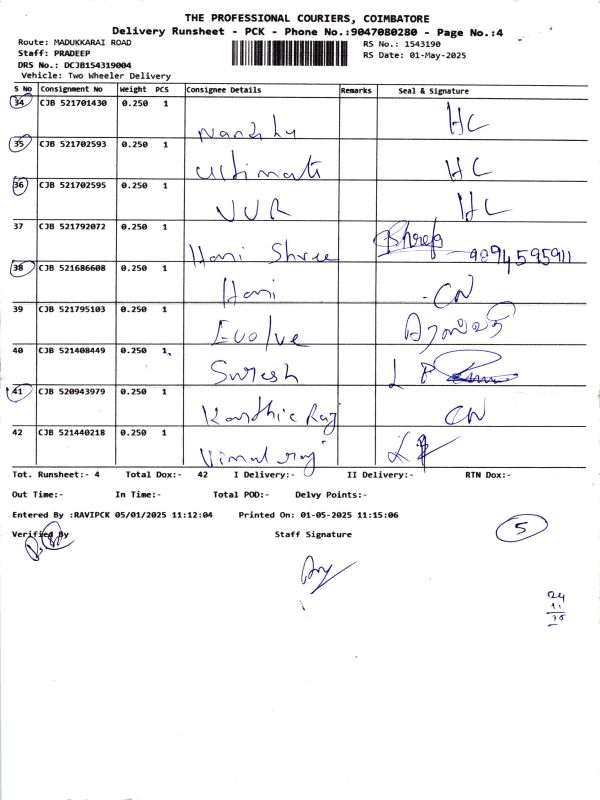 THE PROFESSIONAL COURIERS, COIMBATORE
Delivery Runsheet - PCK - Phone No.:9047080280 - Page No.:4
Route: MADUKKARAI ROAD RS No.: 1543190
Staff: PRADEEP RS Date: 01-May-2025
DRS No.: DCJB154319004
Vehicle: Two Wheeler Delivery
S No Consignment No Weight PCS Consignee Details Remarks Seal & Signature
34 CJB 521701430 0.250 1 HC
35 CJB 521702593 0.250 1 Ultimate HC
36 CJB 521702595 0.250 1 VVR HC
37 CJB 521792072 0.250 1 Hani Shree 9894595911
38 CJB 521686608 0.250 1 Hani CN
39 CJB 521795103 0.250 1 Evolve
40 CJB 521408449 0.250 1 Suresh
41 CJB 520943979 0.250 1 Karthic Raj CN
42 CJB 521440218 0.250 1 Vimal raj
Tot. Runsheet:- 4 Total Dox:- 42 I Delivery:- II Delivery:- RTN Dox:-
Out Time:- In Time:- Total POD:- Delvy Points:-
Entered By :RAVIPCK 05/01/2025 11:12:04 Printed On: 01-05-2025 11:15:06
Verified By Staff Signature
5
24
11